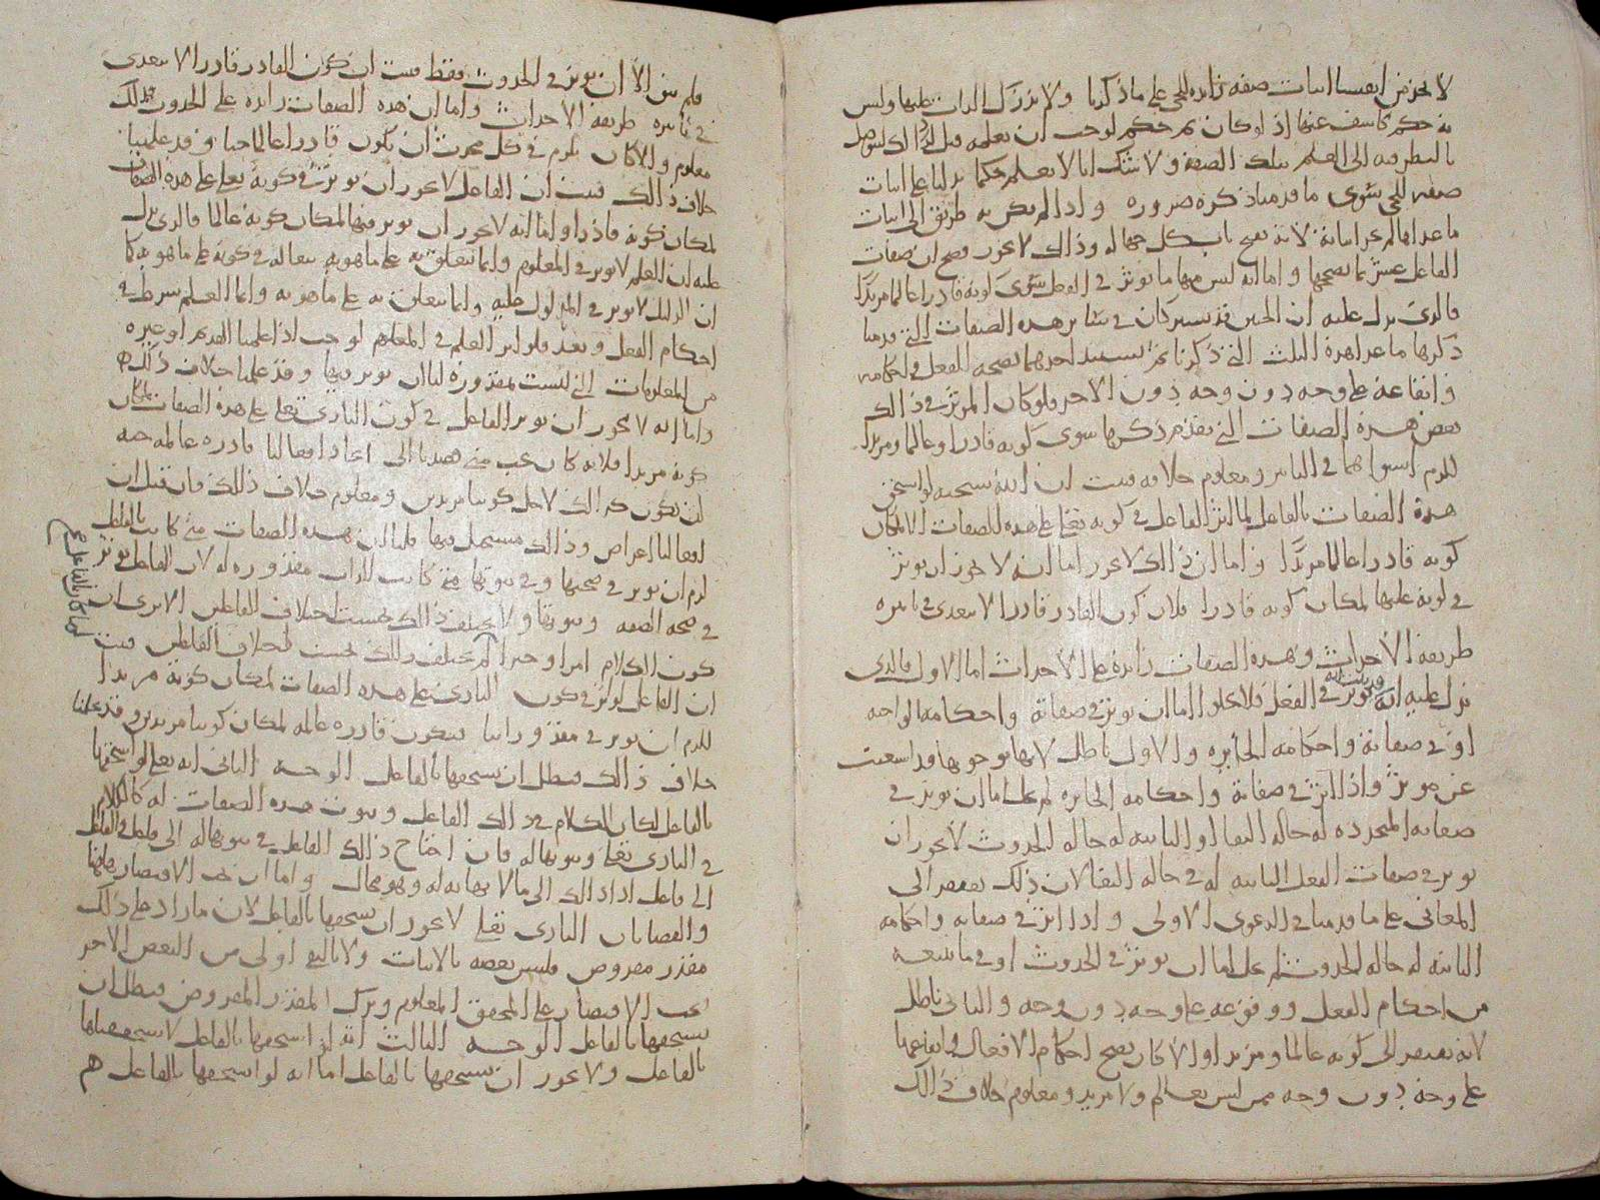 لا يجوز من انفسنا اثبات صفة زائدة للحي على ما ذكرنا ولا تدرك الذات عليها وليس
له حكم كاشف عنها إذ لو كان ثم حكم لوجب ان نعلمه قبل
بالنظر فيه الى العلم بتلك الصفة ولا شك انا لا نعلم حكما يدلنا على اثبات
صفة للحي سوى ما قدمنا ذكره ضرورة واذا لم يكن له طريق الى اثبات
ما عداها لم يجز اثباته لانه يفتح باب كل جهالة وذلك لا يجوز فصح ان صفات
الفاعل واما انه ليس فيها ما يؤثر في الفعل سوى كونه قادرا عالما مريدا
فالذي يدل عليه ان الحيين قد يشتركان في سائر هذه الصفات التي قدمنا
ذكرها ما عدا هذه الثلث التي ذكرنا ثم يستبد احدهما بصحة الفعل في احكامه
وايقاعه على وجه دون وجه دون الاخر فلو كان المؤثر في ذلك
بعض هذه الصفات التي تقدم ذكرها سوى كونه قادرا وعالما ومريدا
للزم استواهما في التاثير ومعلوم خلافه فثبت ان لو استحق
هذه الصفات بالفاعل لما اثر الفاعل في كونه تعالى على هذه الصفات الا لمكان
كونه قادرا عالما مريدا واما ان ذلك لا يجوز اما انه لا يجوز ان يؤثر
في كونه عليها لمكان كونه قادرا فلان كون القادر قادرا لا يتعدى في تاثيره
طريقة الاحداث وهذه الصفات زائدة على الاحداث اما الاول فالذي
يدل عليه انه قد ثبت انه يؤثر في الفعل فلا يخلو اما ان يؤثر في صفاته واحكامه الواجبة
او في صفاته واحكامه الجائزة والاول باطل لانها بوجوبها قد استغنت
عن مؤثر واذا اثر في صفاته واحكامه الجائزة لم يخل اما ان يؤثر في
صفاته المتجددة له حالة البقا او الثابتة له حالة الحدوث لا يجوز ان
يؤثر في صفات الفعل الثابتة له في حالة البقا لان ذلك يفتقر الى
المعاني على ما قدمنا في الدعوى الاولى واذا اثر في صفاته واحكامه
الثابتة له حالة الحدوث لم يخل اما ان يؤثر في الحدوث او في ما يتبعه
من احكام الفعل ووقوعه على وجه دون وجه والثاني باطل
لانه يفتقر الى كونه عالما ومريدا والا كان يصح احكام الافعال وايقاعها
على وجه دون وجه ممن ليس بعالم ولا مريد ومعلوم خلاف ذلك
فلم يبق الا ان يؤثر في الحدوث فقط فثبت ان كون القادر قادرا لا يتعدى
في تاثيره طريقة الاحداث واما ان هذه الصفات زائدة على الحدوث فذلك
معلوم والا كان يلزم في كل محدث ان يكون قادرا عالما حيا وقد علمنا
خلاف ذلك فثبت ان الفاعل لا يجوز ان يؤثر في كونه تعالى على هذه الصفات
لمكان كونه قادرا واما انه لا يجوز ان يؤثر فيها لمكان كونه عالما فالذي يدل
عليه ان العلم لا يؤثر في المعلوم وانما يتعلق به على ما هو به في كونه على ما هو به كما
ان الدليل لا يؤثر في المدلول عليه وانما يتعلق به على ما هو به وانما العلم شرط في
احكام الفعل وبعد فلو اثر العلم في المعلوم لوجب اذا علمنا القديم او غيره
من المعلومات التي ليست مقدورة لنا ان نؤثر فيها وقد علمنا خلاف ذلك
واما انه لا يجوز ان يؤثر الفاعل في كون الباري تعالى على هذه الصفات لمكان
كونه مريدا فلانه كان يجب متى قصدنا الى ايجاد افعالنا قادرة عالمة حية
ان تكون كذلك لاجل كوننا مريدين ومعلوم خلاف ذلك فان قيل ان
افعالنا اعراض وذلك مستحيل فيها قلنا ان هذه الصفات متى كانت بالفاعل
لزم ان يؤثر في صحتها وفي ثبوتها متى كانت الذات مقدورة له لان الفاعل يؤثر
في صحة الصفة وثبوتها ولا يختلف ذلك بحسب اختلاف الفاعلين الا ترى ان
كون الكلام امرا وخبرا لم يختلف ذلك بحسب اختلاف الفاعلين فثبت
ان الفاعل لو اثر في كون الباري على هذه الصفات لمكان كونه مريدا
للزم ان يؤثر في مقدوراتنا فتكون قادرة عالمة لمكان كوننا مريدين وقد علمنا
خلاف ذلك فبطل ان يستحقها بالفاعل الوجه الثاني انه تعالى لو استحقها
بالفاعل لكان الكلام في ذلك الفاعل وثبوت هذه الصفات له كالكلام
في الباري تعالى وثبوتها له فان احتاج ذلك الفاعل في ثبوتها له الى فاعل والفاعل
الى فاعل ادى ذلك الى ما لا نهاية له وهو محال واما ان يجب الاقتصار
الباري تعالى لا يجوز ان يستحقها بالفاعل لان ما زاد على ذلك
مقدر مفروض فليس بعضه بالاثبات ولا بالنفي اولى من البعض الاخر
يجب الاقتصار على المحقق المعلوم وترك المقدر المفروض فبطل ان
يستحقها بالفاعل الوجه الثالث انه لو استحقها بالفاعل
بالفاعل ولا يجوز ان يستحقها بالفاعل اما انه لو استحقها بالفاعل